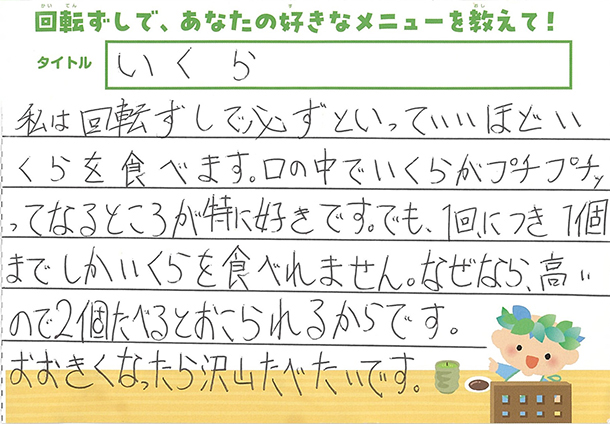 回転ずしで、あなたの好きなメニューを教えて！
タイトル
いくら
私は回転ずしで必ずといっていいほどい
くらを食べます。口の中でいくらがプチプチッ
ってなるところが特に好きです。でも、1回につき1個
までしかいくらを食べれません。なぜなら、高い
ので2個たべるとおこられるからです。
おおきくなったら沢山たべたいです。